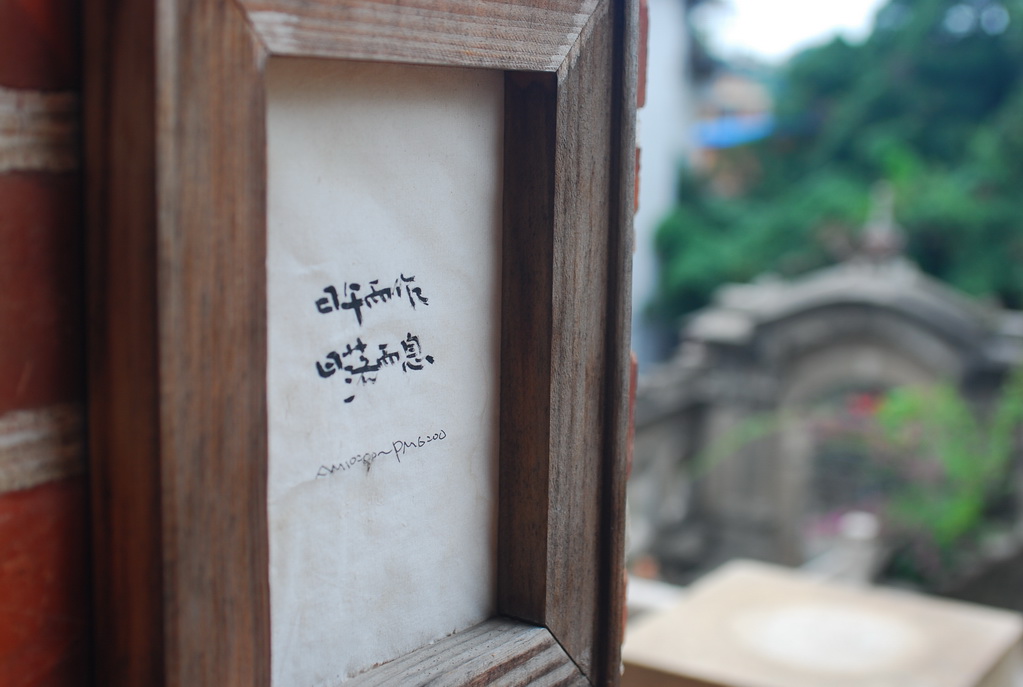 日午而作
日落而息
AM10:00~PM6:00